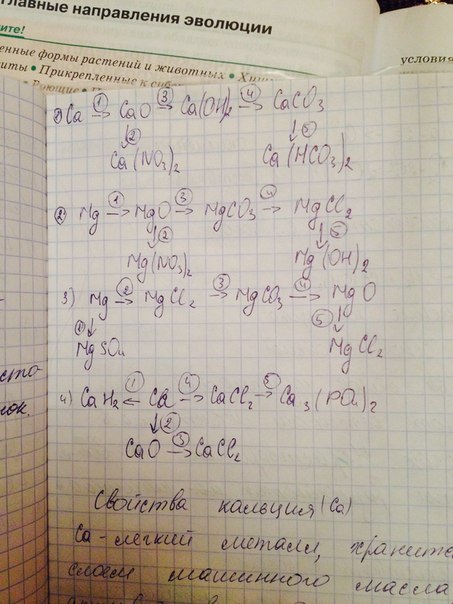 главные направления эволюции
ите!
енные формы растений и животных • Хищ
условия
иты • Прикрепленные к субс
1) Ca →① CaO →③ Ca(OH)₂ →④ CaCO₃
↓② ↓⑤
Ca(NO₃)₂ Ca(HCO₃)₂
2) Mg →① MgO →③ MgCO₃ →④ MgCl₂
↓② ↓⑤
Mg(NO₃)₂ Mg(OH)₂
3) Mg →② MgCl₂ →③ MgCO₃ →④ MgO
①↓ ⑤↓
MgSO₄ MgCl₂
4) CaH₂ ←① Ca →④ CaCl₂ →⑤ Ca₃(PO₄)₂
↓②
CaO →③ CaCl₂
Свойства кальция (Ca)
Ca - легкий металл, храните
слоем машинного масла